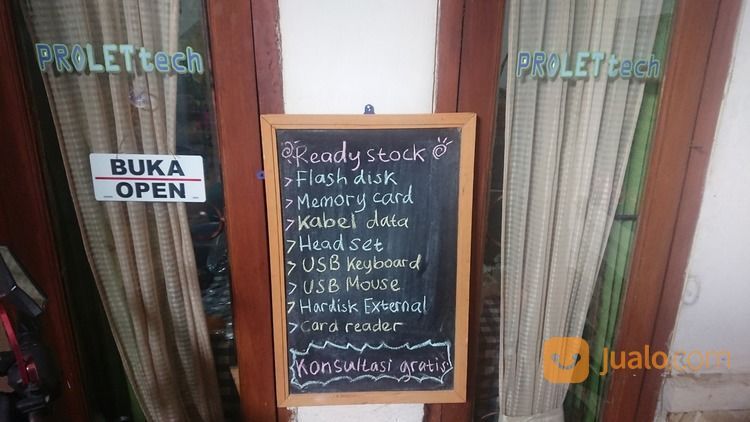 PROLETtech
PROLETtech
BUKA
OPEN
Ready stock
> Flash disk
> Memory card
> Kabel data
> Head set
> USB Keyboard
> USB Mouse
> Hardisk External
> Card reader
Konsultasi gratis
jualo.com